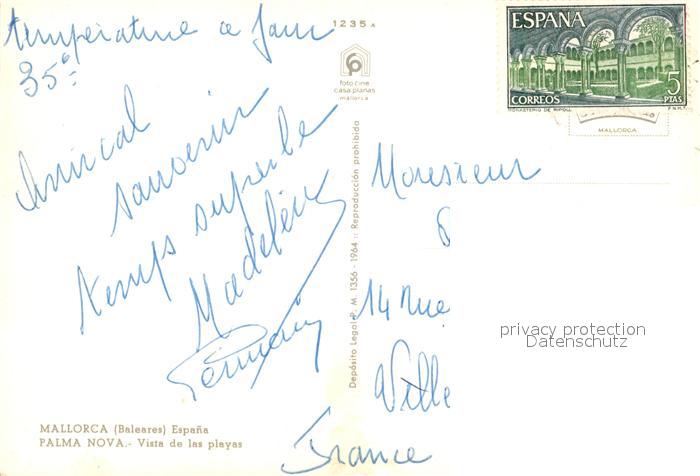 température a jour
35°
Amical
souvenir
temps superbe
Madeleine
Germain
MALLORCA (Baleares) España
PALMA NOVA.- Vista de las playas
1235 A
foto cine
casa planas
mallorca
Depósito Legal P. M. 1356 - 1964 :: Reproducción prohibida
ESPAÑA
CORREOS
5
PTAS
MONASTERIO DE RIPOLL
F.N.M.T.
MALLORCA
Monsieur
14 Rue
privacy protection
Datenschutz
Ville
France